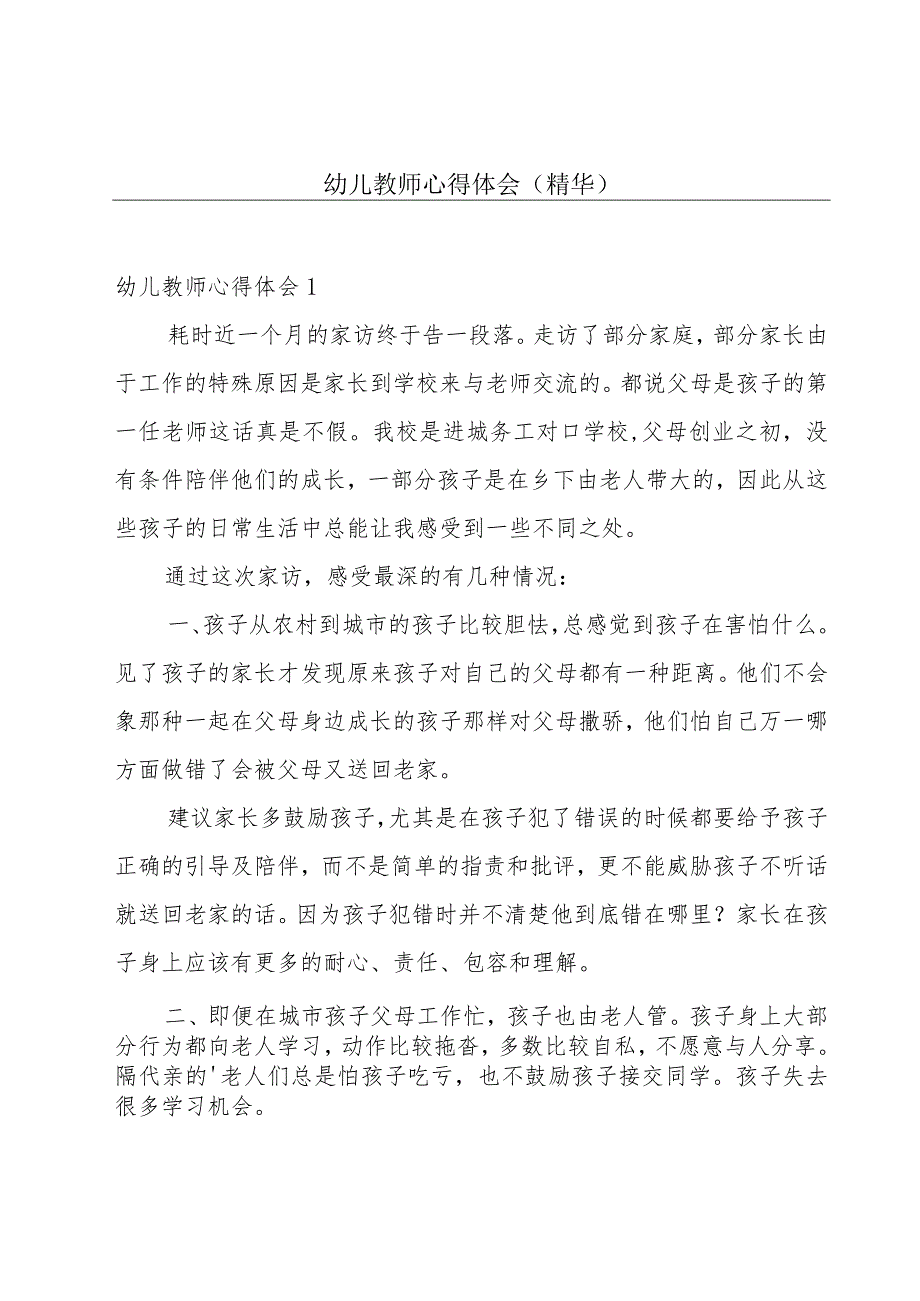 幼儿教师心得体会（精华）
幼儿教师心得体会1
耗时近一个月的家访终于告一段落。走访了部分家庭，部分家长由
于工作的特殊原因是家长到学校来与老师交流的。都说父母是孩子的第
一任老师这话真是不假。我校是进城务工对口学校,父母创业之初，没
有条件陪伴他们的成长，一部分孩子是在乡下由老人带大的，因此从这
些孩子的日常生活中总能让我感受到一些不同之处。
通过这次家访，感受最深的有几种情况：
一、孩子从农村到城市的孩子比较胆怯,总感觉到孩子在害怕什么。
见了孩子的家长才发现原来孩子对自己的父母都有一种距离。他们不会
象那种一起在父母身边成长的孩子那样对父母撒骄，他们怕自己万一哪
方面做错了会被父母又送回老家。
建议家长多鼓励孩子,尤其是在孩子犯了错误的时候都要给予孩子
正确的引导及陪伴，而不是简单的指责和批评，更不能威胁孩子不听话
就送回老家的话。因为孩子犯错时并不清楚他到底错在哪里？家长在孩
子身上应该有更多的耐心、责任、包容和理解。
二、即便在城市孩子父母工作忙，孩子也由老人管。孩子身上大部
分行为都向老人学习，动作比较拖沓，多数比较自私，不愿意与人分享。
隔代亲的'老人们总是怕孩子吃亏，也不鼓励孩子接交同学。孩子失去
很多学习机会。